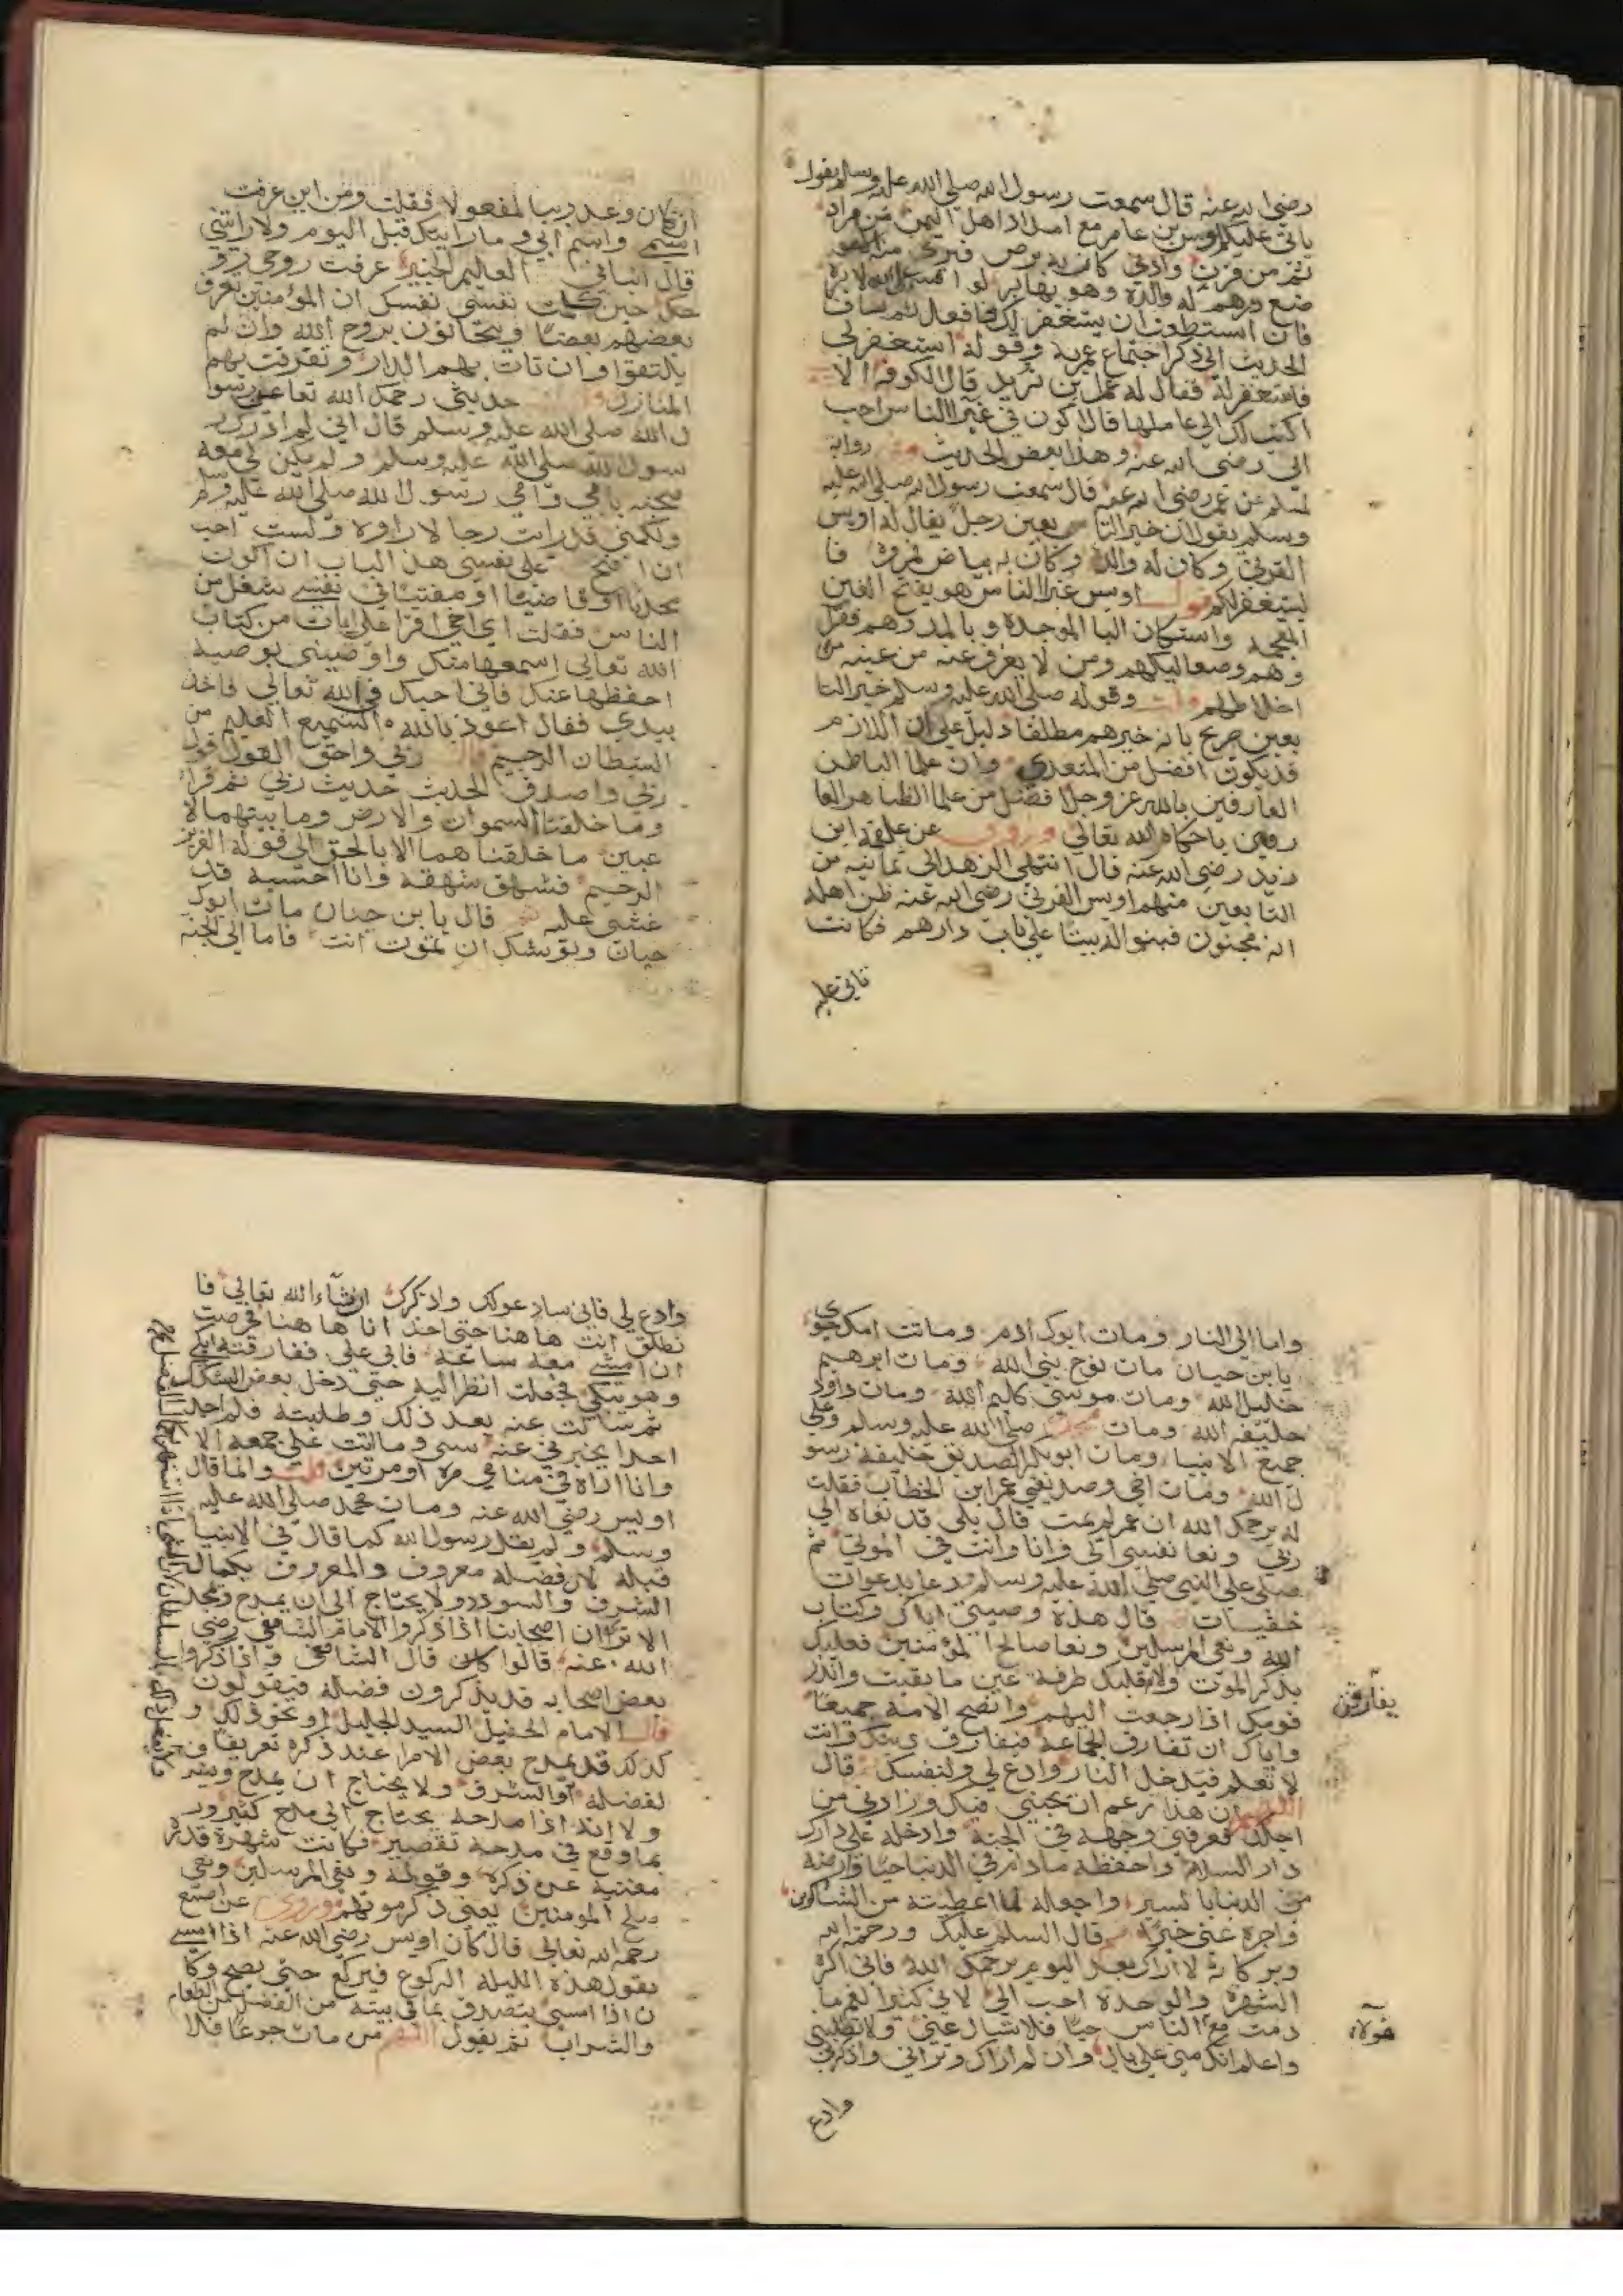 رضي الله عنه قال سمعت رسول الله صلى الله عليه وسلم يقول
ياتي عليكم اويس بن عامر مع امداد اهل اليمن من مراد
ثم من قرن وادني كان به برص فبرئ منه الا مو
ضع درهم له والدة وهو بها بر لو اقسم على الله لابره
فان استطعت ان يستغفر لك فافعل ثم ساق
الحديث الى ذكر اجتماع عمر به وقوله استغفر لي
فاستغفر له فقال له عمر اين تريد قال الكوفة الا
اكتب لك الى عاملها قال اكون في غبرا الناس احب
الى رضي الله عنه وهذا بعض الحديث وفي رواية
لمسلم عن عمر رضي الله عنه قال سمعت رسول الله صلى الله عليه
وسلم يقول ان خير التا بعين رجل يقال له اويس
القرني وكان له والدة وكان به بياض فمروه فا
ليستغفر لكم قوله اويس غبرا الناس هو بفتح الغين
المعجمة واسكان البا الموحدة وبالمد وهم فقرا
وهم وصعاليكهم ومن لا يعرف عنه من عينه من
اخلاطهم قلت وقوله صلى الله عليه وسلم خير التا
بعين صريح بانه خيرهم مطلقا دليل على ان اللازم
قد يكون افضل من المتعدي وان علما الباطن
العارفين بالله عز وجل افضل من علما الظاهر العا
رفين باحكام الله تعالى وروي عن علقمة ابن
زيد رضي الله عنه قال انتهى الزهد الى ثمانية من
التابعين منهم اويس القرني رضي الله عنه ظن اهله
انه مجنون فبنوا له بيتا على باب دارهم فكانت
تاتي عليه
ان كان وعد ربنا لمفعولا فقلت ومن اين عرفت
اسمي واسم ابي وما رايتك قبل اليوم ولا رايتني
قال انباني العليم الخبير عرفت روحي رو
حك حين كلمت نفسي نفسك ان المؤمنين يعرف
بعضهم بعضا ويتحابون بروح الله وان لم
يلتقوا وان نات بهم الدار وتفرقت بهم
المنازل حدثني رحمك الله تعا عن رسو
ل الله صلى الله عليه وسلم قال اني لم ادرك ر
سول الله صلى الله عليه وسلم ولم يكن لي معه
صحبة بابي وامي رسول الله صلى الله عليه وسلم
ولكني قد رايت رجا لا راوه ولست احب
ان افتح على نفسي هذا الباب ان اكون
محدثا او قاضيا او مفتيا في نفسي شغل من
الناس فقلت اي اخي اقرا على ايات من كتاب
الله تعالى اسمعها منك واوصيني بوصية
احفظها عنك فاني احبك في الله تعالى فاخذ
بيدي فقال اعوذ بالله السميع العليم من
الشيطان الرجيم قال ربي واحق القول قول
ربي واصدق الحديث حديث ربي ثم قرا
وما خلقنا السموات والارض وما بينهما لا
عبين ما خلقنا هما الا بالحق الى قوله العزيز
الرحيم فشهق شهقة وانا احسبه قد
غشي عليه ثم قال يا بن حيان مات ابوك
حيان ويوشك ان تموت انت فاما الى الجنة
واما الى النار ومات ابوك ادم وماتت امك حوى
يا بن حيان مات نوح نبي الله ومات ابرهيم
خليل الله ومات موسى كليم الله ومات داود
خليفة الله ومات محمد صلى الله عليه وسلم وعلى
جميع الانبيا ومات ابو بكر الصديق خليفة رسو
ل الله ومات اخي وصديقي عمر ابن الخطاب فقلت
له يرحمك الله ان عمر لم يمت قال بلى قد نعاه الى
ربي ونعا نفسي الى وانا وانت في الموتى ثم
صلى على النبي صلى الله عليه وسلم ودعا بدعوات
خفيات قال هذه وصيتي اياك وكتاب
الله ونعي المرسلين ونعا صالحا المؤمنين فعليك
بذكر الموت ولا قلبك طرفة عين ما بقيت وانذر
قومك اذا رجعت اليهم وانصح الامة جميعا
واياك ان تفارق الجماعة فيفارق دينك وانت
لا تعلم فيدخل النار وادع لي ولنفسك قال
اللهم ان هذا زعم ان يحبني فيك وزارني من
اجلك فعرفني وجهه في الجنة وادخله على دارك
دار السلام واحفظه ما دام في الدنيا حيا وارضه
من الدنيا باليسير واجعله لما اعطيته من الشاكرين
واجزه عني خيرا ثم قال السلام عليك ورحمة الله
وبركاته لا اراك بعد اليوم يرحمك الله فاني اكره
الشهرة والوحدة احب الى لاني كثير الغم ما
دمت مع الناس حيا فلا تسال عني ولا تطلبني
واعلم انك مني على بال وان لم اراك وتراني واذكرني
يفارقن
هولاء
وادع
وادع لي فاني سادعو لك واذكرك ان شاء الله تعالى فا
نطلق انت ها هنا حتى اخذ انا ها هنا فحرصت
ان امشي معه ساعة فابى علي ففارقته ابكي
وهو يبكي فجعلت انظر اليه حتى دخل بعض السكك
ثم سالت عنه بعد ذلك وطلبته فلم اجد
احدا يخبرني عنه بشي وما اتت علي جمعة الا
وانا اراه في منامي مرة او مرتين قلت وانما قال
اويس رضي الله عنه ومات محمد صلى الله عليه
وسلم ولم يقل رسول الله كما قال في الانبيا
قبله لان فضله معروف والمعروف بكمال
الشرف والسودد ولا يحتاج الى ان يمدح ويمجد
الا ترى ان اصحابنا اذا ذكروا الامام الشافعي رضي
الله عنه قالوا كان قال الشافعي واذا ذكروا
بعض اصحابه قد يذكرون فضله فيقولون
قال الامام الحفيل السيد الجليل او نحو ذلك و
كذلك قد يمدح بعض الامرا عند ذكره تعريفا
لفضله او الشرف ولا يحتاج ان يمدح
ولانه اذا مدحه يحتاج الى مدح كثير ور
بما وقع في مدحه تقصير فكانت شهرة قدره
مغنية عن ذكره وقوله ونعي المرسلين ونعي
صلح المومنين يعني ذكر موتهم وروي عن اصبغ
رحمه الله تعالى قال كان اويس رضي الله عنه اذا امسى
يقول هذه الليلة الركوع فيركع حتى يصبح وكا
ن اذا امسى يتصدق بما في بيته من الفضل من الطعام
والشراب ثم يقول اللهم من مات جوعا فلا